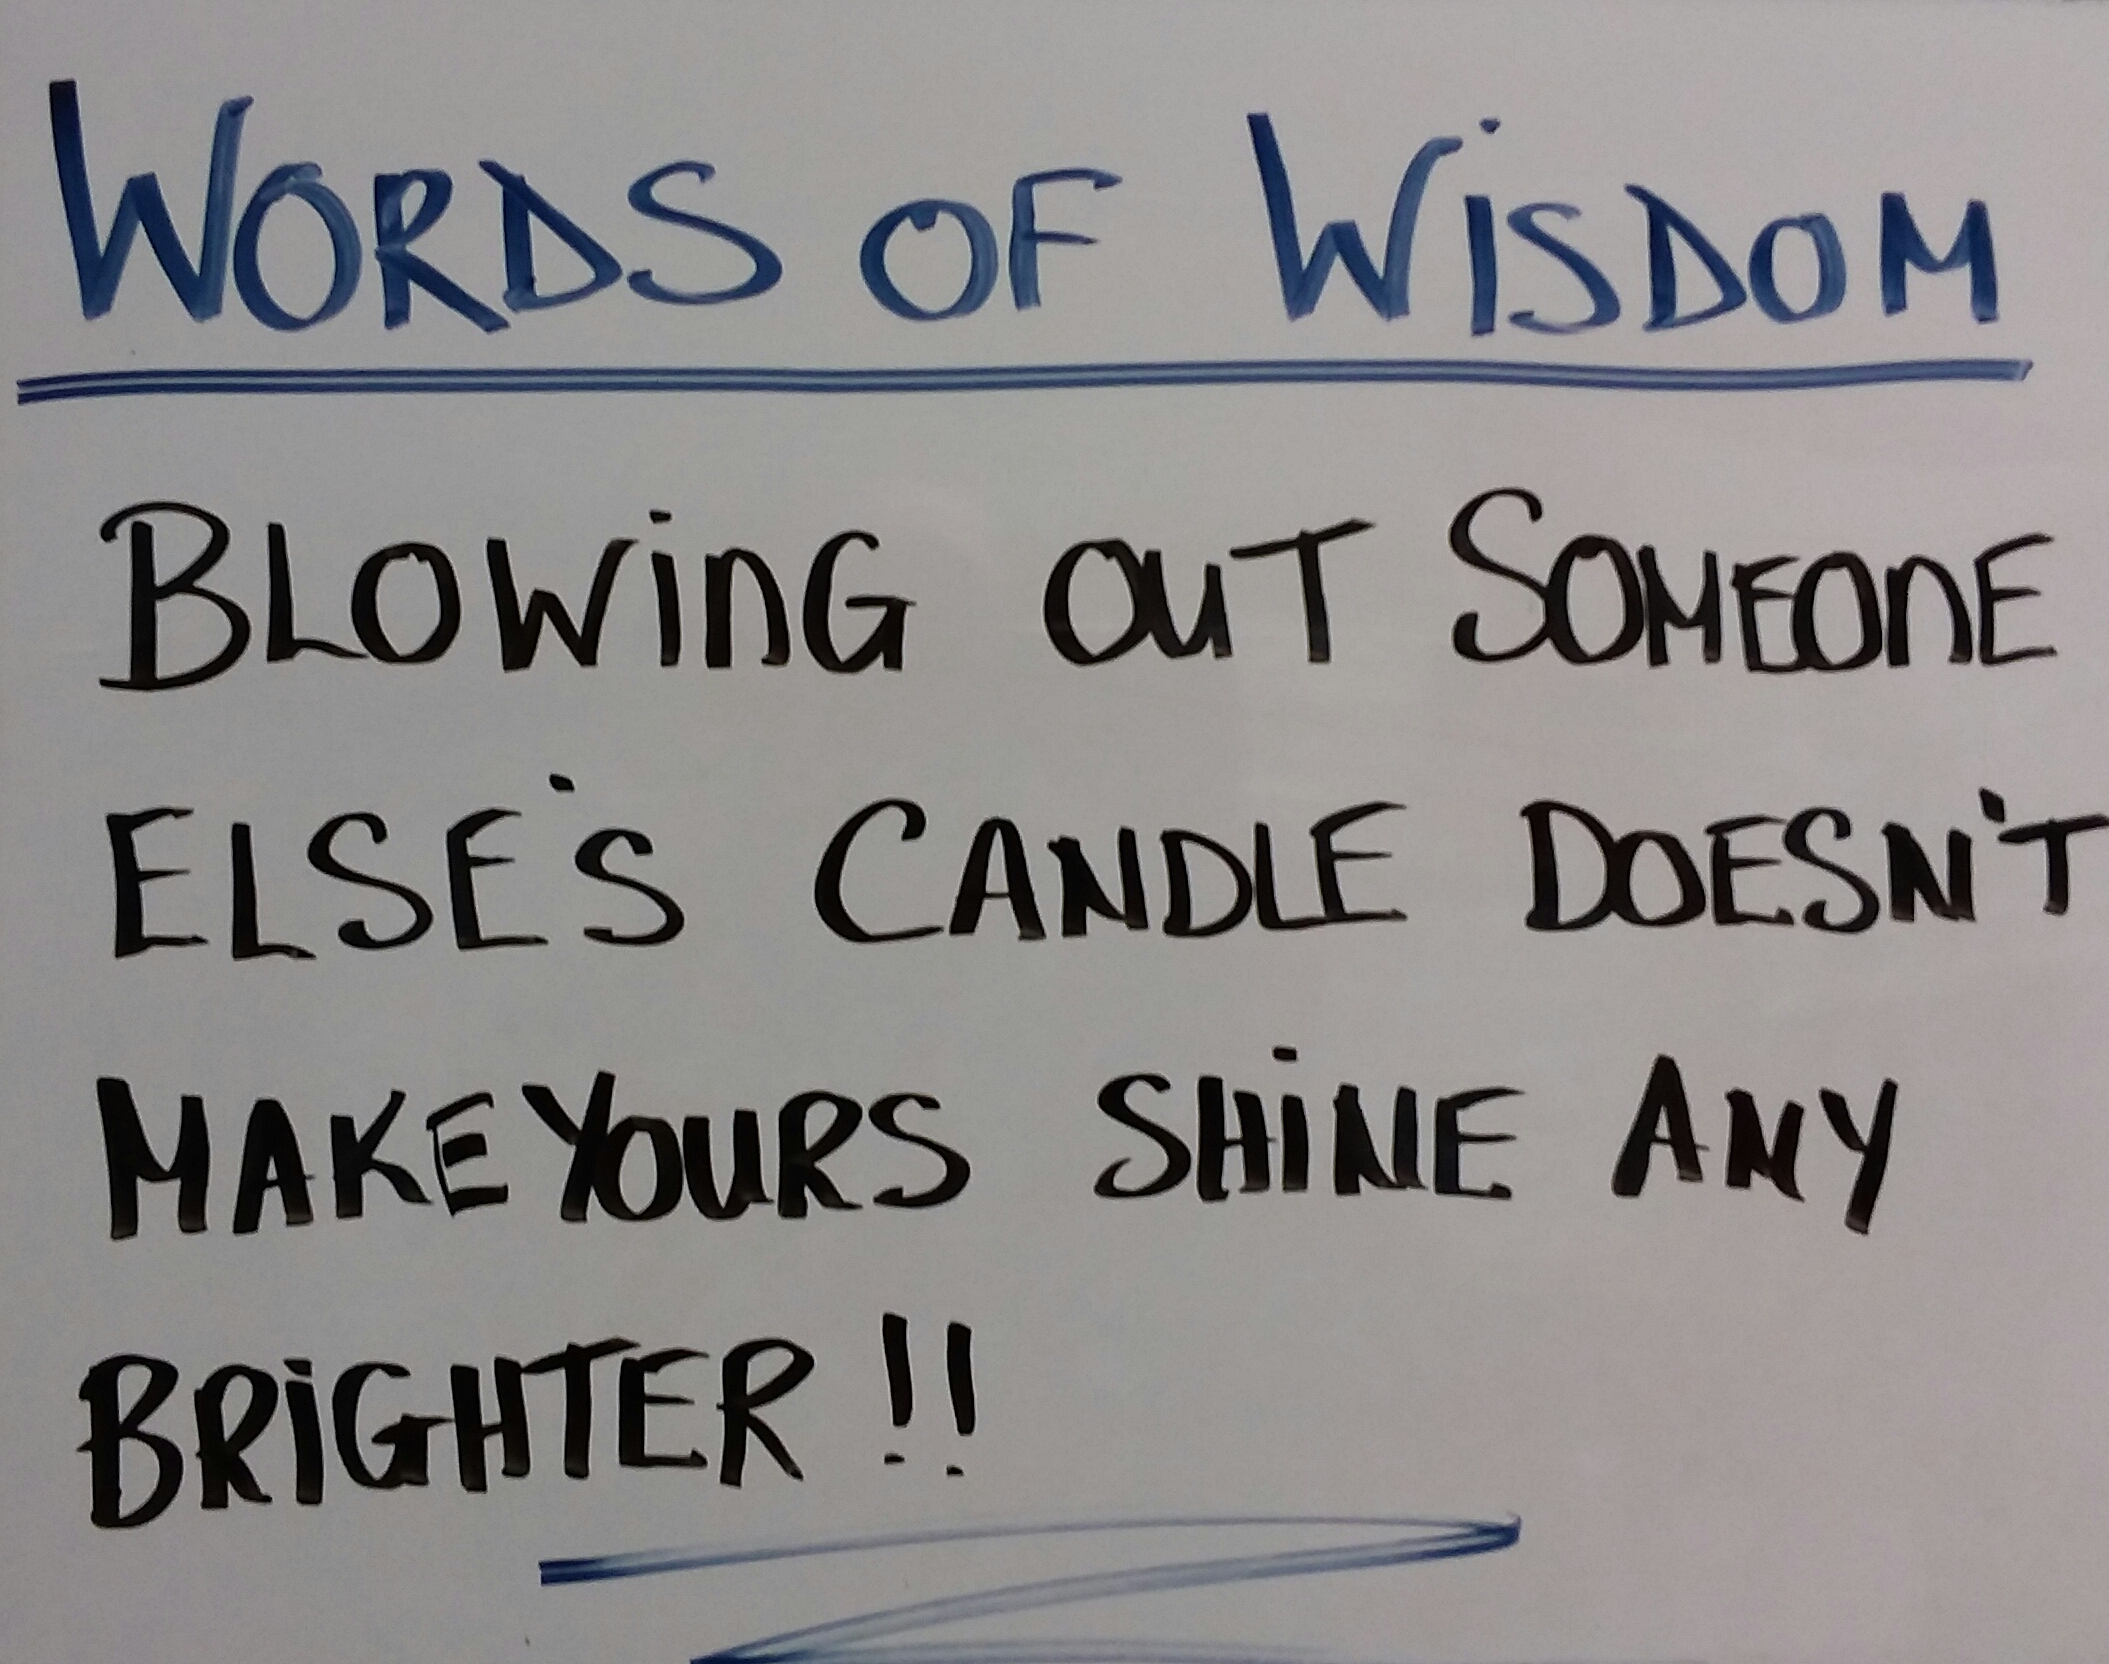 WORDS OF WISDOM
BLOWING OUT SOMEONE
ELSE'S CANDLE DOESN'T
MAKE YOURS SHINE ANY
BRIGHTER !!